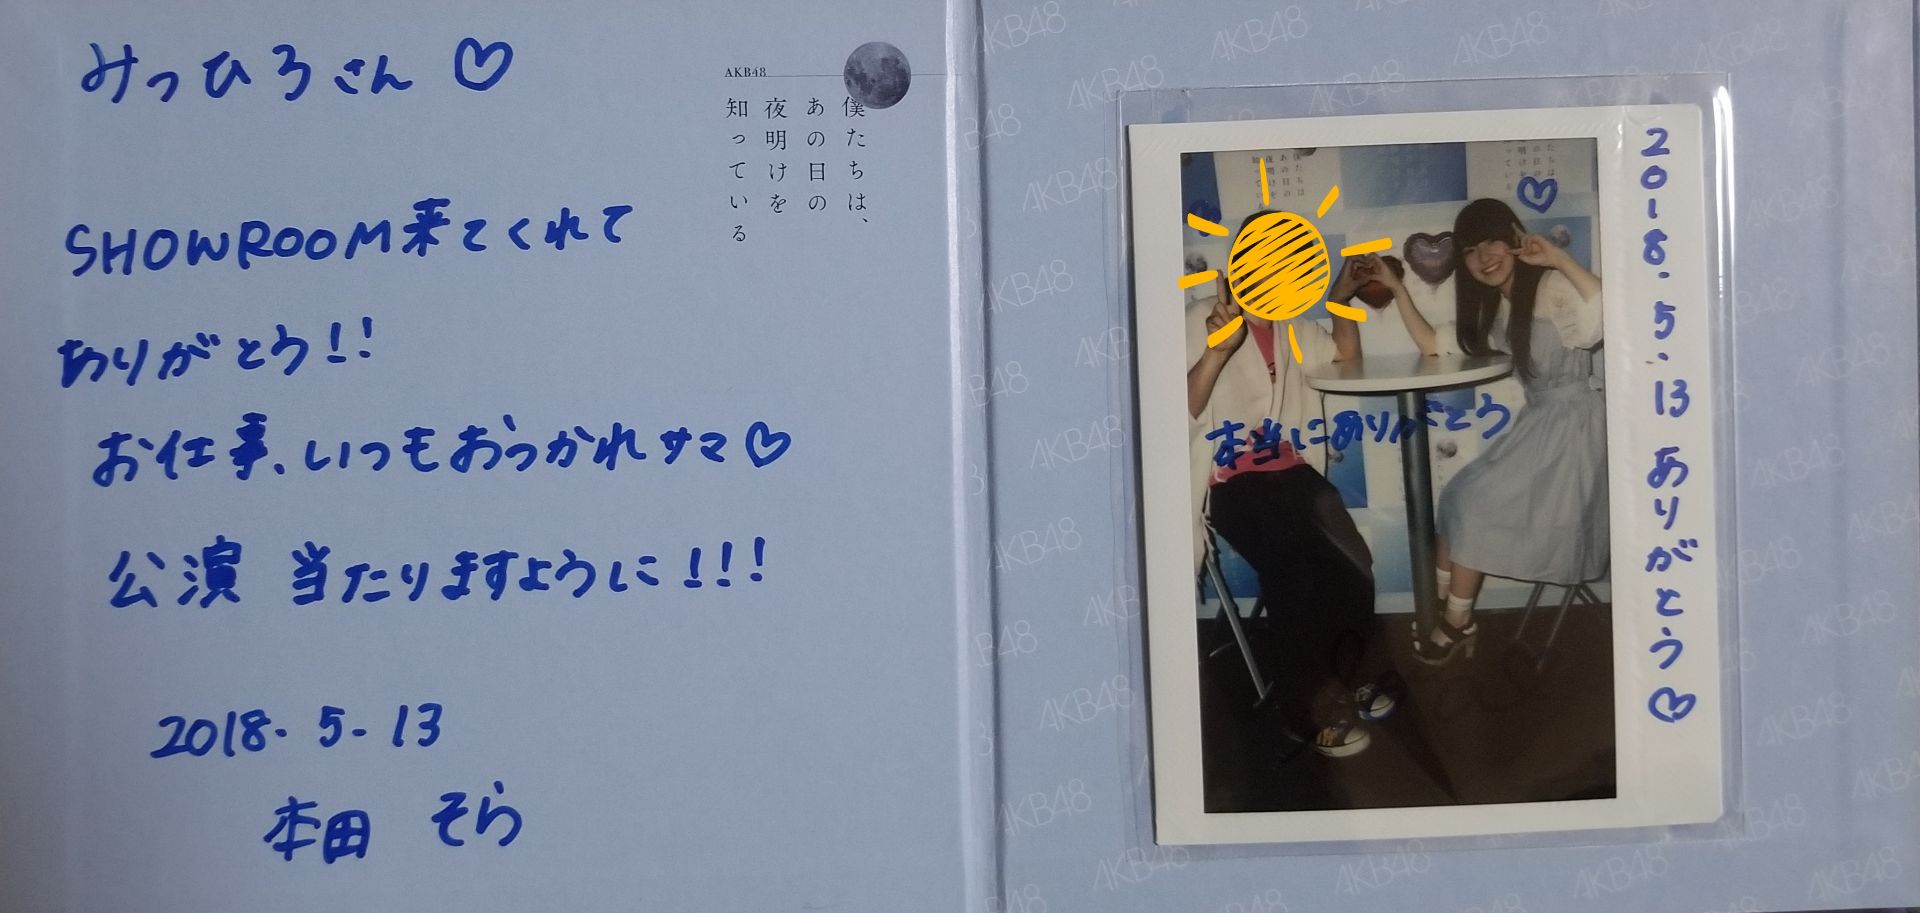 みつひろさん♡
SHOWROOM来てくれて
ありがとう!!
お仕事、いつもおつかれサマ♡
公演 当たりますように!!!
2018.5.13
本田 そら
AKB48
僕たちは、
あの日の
夜明けを
知っている
2018.5.13 ありがとう♡
本当にありがとう
AKB48